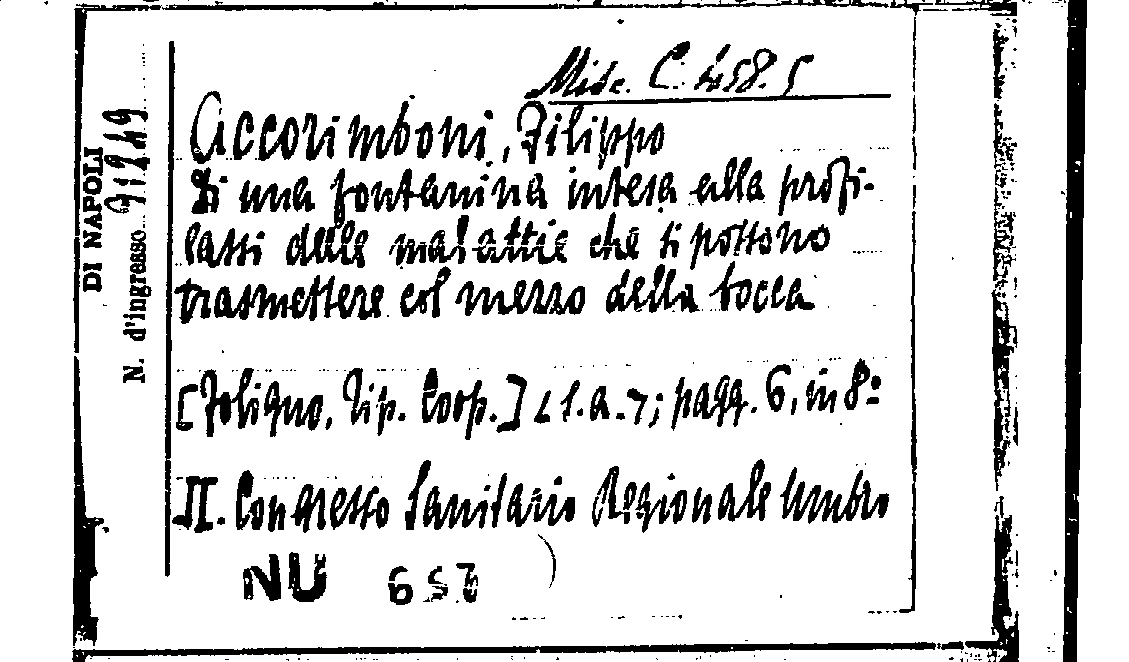 Misc. C. 458. 5
Accorimboni, Filippo
Di una fontanina intesa alla profi-
lassi delle malattie che si possono
trasmettere col mezzo della bocca
[Foligno, Tip. Coop.] < s. a. >; pagg. 6, in 8º
II. Congresso Sanitario Regionale Umbro
NU 657
DI NAPOLI
N. d'ingresso